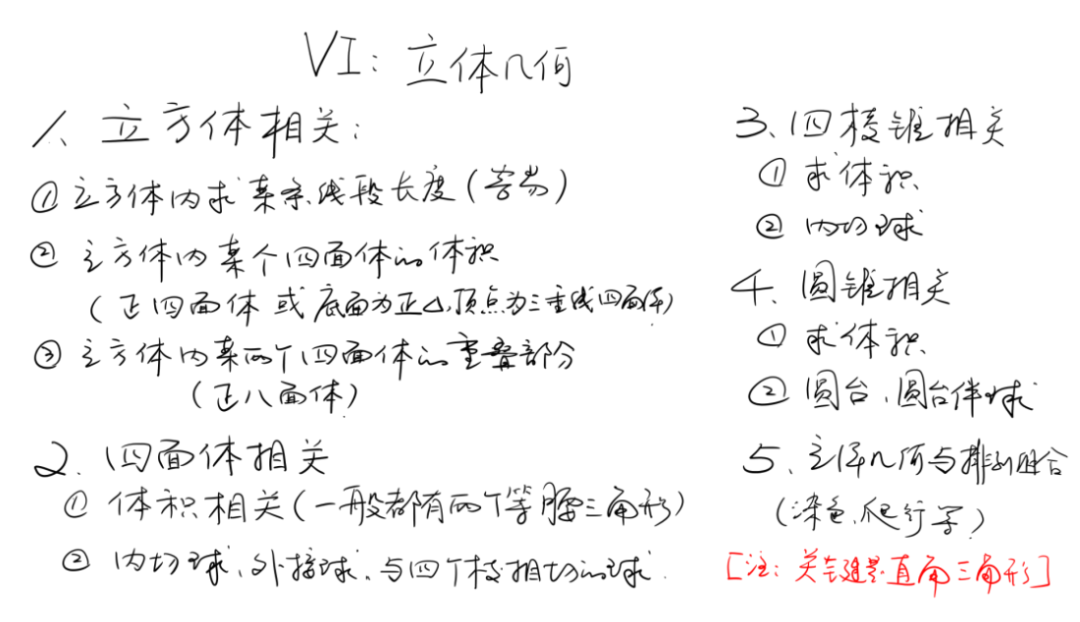 VI: 立体几何
1、立方体相关:
①立方体内求某条线段长度(容易)
② 立方体内某个四面体的体积
(正四面体 或 底面为正△,顶点为三垂线四面体)
③ 立方体内某两个四面体的重叠部分
(正八面体)
2、四面体相关
① 体积相关(一般都有两个等腰三角形)
② 内切球、外接球、与四个棱相切的球.
3、四棱锥相关
① 求体积.
② 内切球
4、圆锥相关
① 求体积.
② 圆台、圆台伴球
5、立体几何与排列组合
(染色、爬行等)
[注: 关键是直角三角形]